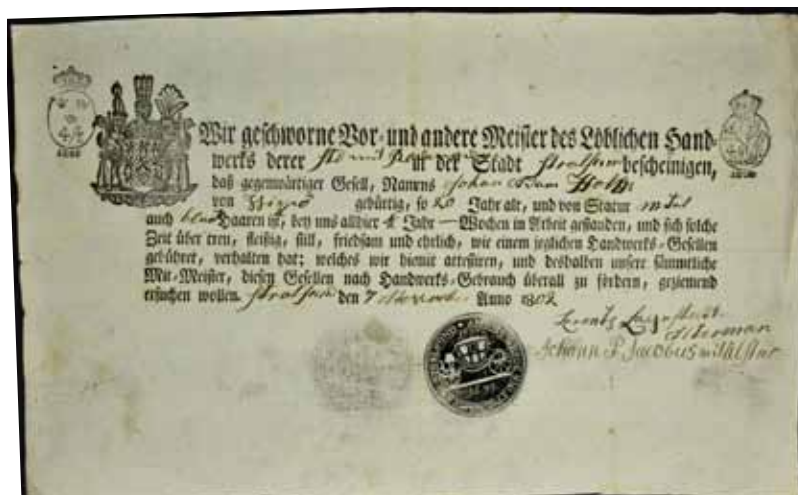 Wir geschworne Vor- und andere Meister des Löblichen Hand-
werks derer in der Stadt Stralsund bescheinigen,
daß gegenwärtiger Gesell, Namens Johan Holm
von gebürtig, so 20 Jahr alt, und von Statur mittel
auch Haaren ist, bey uns allhier Jahr — Wochen in Arbeit gestanden, und sich solche
Zeit über treu, fleißig, still, friedsam und ehrlich, wie einem jeglichen Handwerks-Gesellen
gebühret, verhalten hat; welches wir hiemit attestiren, und deshalben unsere sämmtliche
Mit-Meister, diesen Gesellen nach Handwerks-Gebrauch überall zu fördern, geziemend
ersuchen wollen. Stralsund den 7 Anno 1802
Alterman
Johann P Jacobus mit Alster